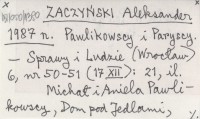 ZACZYŃSKI Aleksander
1987 r. Pawlikowscy i Paryscy.
— Sprawy i Ludzie (Wrocław)
6, nr 50-51 (17 XII): 21, il.
Michał i Aniela Pawli-
kowscy, Dom pod Jedlami,